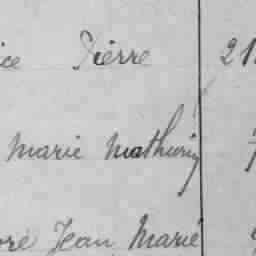 ice Pierre 21
Marie Mathurin 7
oré Jean Marie